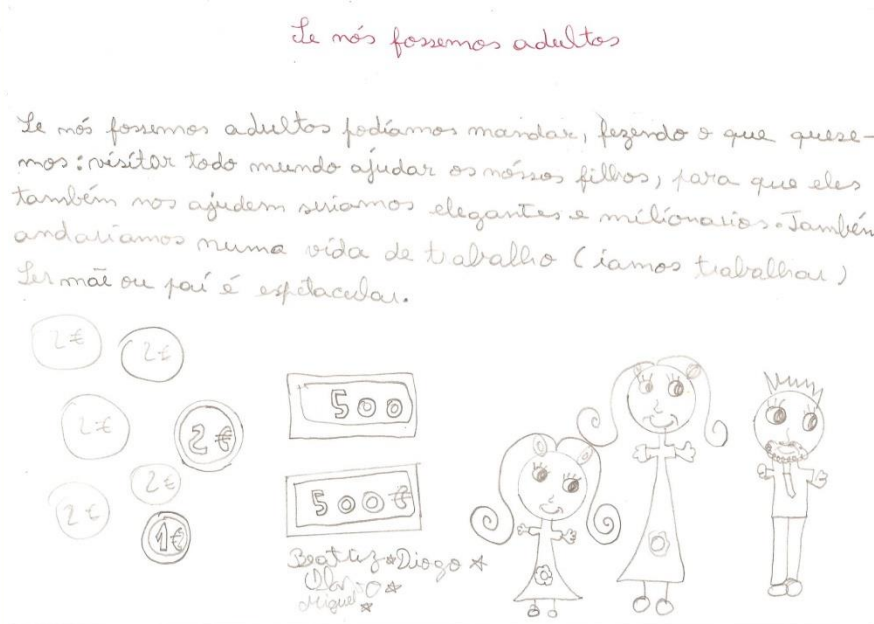 Se nós fossemos adultos
Se nós fossemos adultos podíamos mandar, fezendo o que quese-
mos: visitar todo mundo ajudar os nóssos filhos, para que eles
também nos ajudem seriamos elegantes e milionarios. Também
andariamos numa vida de trabalho (iamos trabalhar)
Ser mãe ou paí é espetacular.
2€ 2€
2€ 2€
2€ 2€
1€
500
500€
Beatriz Diogo
Miguel